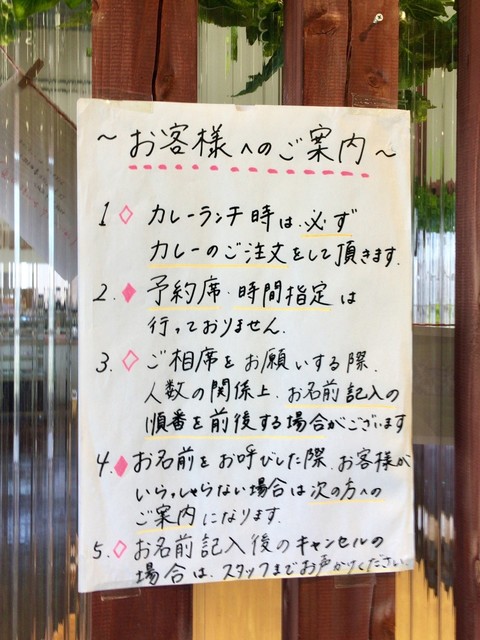 ～お客様へのご案内～
1◇カレーランチ時は、必ず
カレーのご注文をして頂きます.
2.◆予約席・時間指定は
行っておりません.
3.◇ご相席をお願いする際、
人数の関係上、お名前記入の
順番を前後する場合がございます
4.◆お名前をお呼びした際、お客様が
いらっしゃらない場合は次の方への
ご案内になります.
5.◇お名前記入後のキャンセルの
場合は、スタッフまでお声がけください.